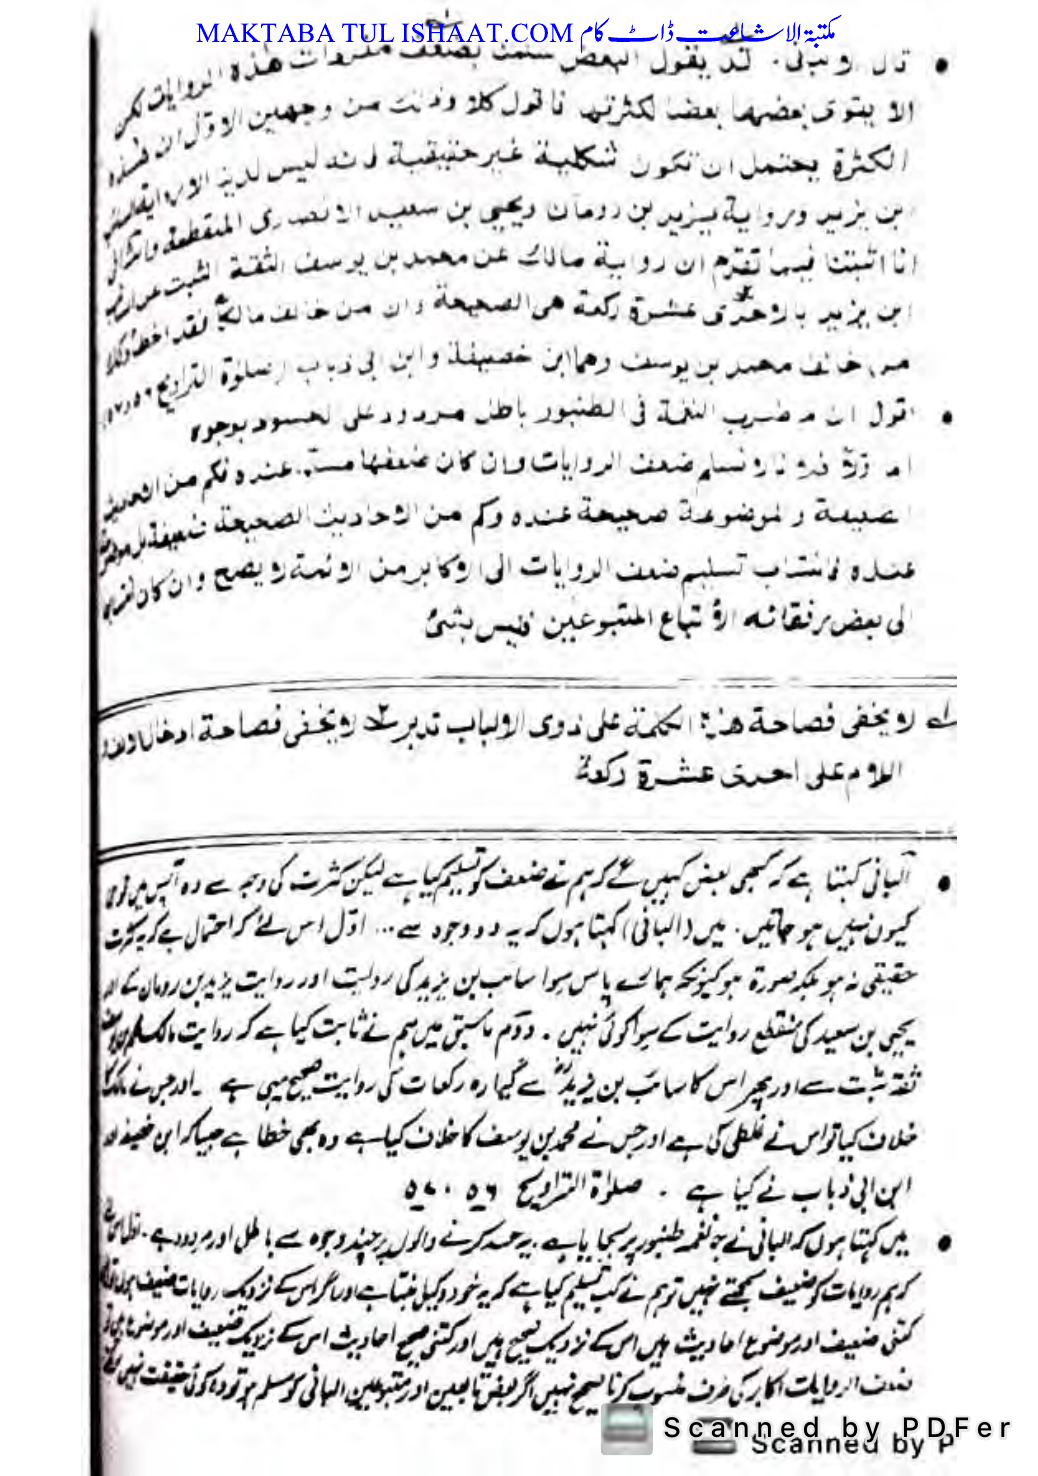 MAKTABA TUL ISHAAT.COM مکتبۃ الاشاعت ڈاٹ کام
قال الالبانی. قد یقول البعض سلمنا بضعف مفردات هذه الروایات لکن
الا یتقوی بعضها بعضا لکثرتها فاقول کلا وذلک من وجهین الاول ان هذه
الکثرة یحتمل ان تکون شکلیة غیر حقیقیة فانه لیس لدینا الا روایة السائب
ابن یزید وروایة یزید بن رومان ویحیی بن سعید الانصاری المنقطعة والثانی
انا اثبتنا فیما تقدم ان روایة مالک عن محمد بن یوسف الثقة الثبت عن السائب
ابن یزید بالاحدی عشرة رکعة هی الصحیحة وان من خالف مالکا فقد اخطأ وکذا
من خالف محمد بن یوسف وهما ابن خصیفة وابن ابی ذباب (صلوة التراویح ۵۶، ۵۷)
اقول ان ما ضرب النغمة فی الطنبور باطل مردود علی الحسود بوجوه
اما اولا فلانا لا نسلم ضعف الروایات وان کان ضعفها مسلم عنده فکم من الاحادیث
الضعیفة والموضوعة صحیحة عنده وکم من الاحادیث الصحیحة ضعیفة بل موضوعة
عنده فانتساب تسلیم ضعف الروایات الی الاکابر من الائمة لا یصح وان کان
الی بعض رفقائه الاتباع المتبوعین فلیس بشئ
لا یخفی فصاحة هذه الکلمة علی ذوی الالباب تدبر ۲ لا یخفی فصاحة ادخال الالف
اللام علی احدی عشرة رکعة
البانی کہتا ہے کہ کبھی بعض کہیں گے کہ ہم نے ضعف کو تسلیم کیا ہے لیکن کثرت کی وجہ سے وہ آپس میں قوی
کیوں نہیں ہو جاتیں. میں (البانی) کہتا ہوں کہ یہ دو وجوہ سے... اوّل اس لئے کہ احتمال ہے کہ یہ کثرت
حقیقی نہ ہو بلکہ صورۃ ہو کیونکہ ہمارے پاس سوا سائب بن یزید کی روایت اور روایت یزید بن رومان کے اور
یحیی بن سعید کی منقطع روایت کے سوا کوئی نہیں. دوّم ماسبق میں ہم نے ثابت کیا ہے کہ روایت مالک
ثقہ ثبت سے اور پھر اس کا سائب بن یزیدؓ سے گیارہ رکعات کی روایت صحیح یہی ہے. اور جس نے مالک کا
خلاف کیا تو اس نے غلطی کی ہے اور جس نے محمد بن یوسف کا خلاف کیا ہے وہ بھی خطا ہے جیسا کہ ابن خصیفہ اور
ابن ابی ذباب نے کیا ہے. صلوٰۃ التراویح ۵۶، ۵۷
میں کہتا ہوں کہ البانی نے جو نغمہ طنبور پر بجایا ہے. یہ حسد کرنے والوں پر چند وجوہ سے باطل اور مردود ہے.
کہ ہم روایات کو ضعیف سمجھتے نہیں تو ہم نے کب تسلیم کیا ہے کہ یہ خود وکیل بنتا ہے اور اگر اس کے نزدیک روایات ضعیف ہوں تو
کتنی ضعیف اور موضوع احادیث ہیں اس کے نزدیک صحیح ہیں اور کتنی صحیح احادیث اس کے نزدیک ضعیف اور موضوع ہیں تو
ضعف الروایات اکابر کی طرف منسوب کرنا صحیح نہیں اگر بعض تابعین اور متبوعین البانی کو مسلم ہو تو وہ کوئی حقیقت نہیں
Scanned by PDFer
Scanned by P